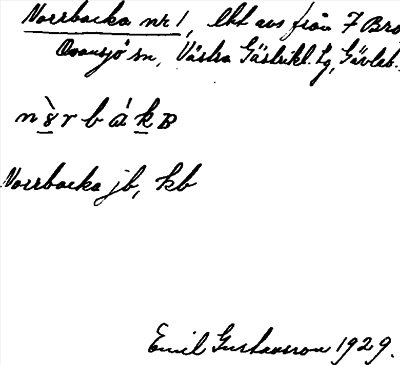 Norrbacka nr 1, lht avs från 7 Bro
Ovansjö sn, Västra Gästrikl. tg, Gävleb.
Norrbacka jb, kb
Emil Gustavsson 1929.